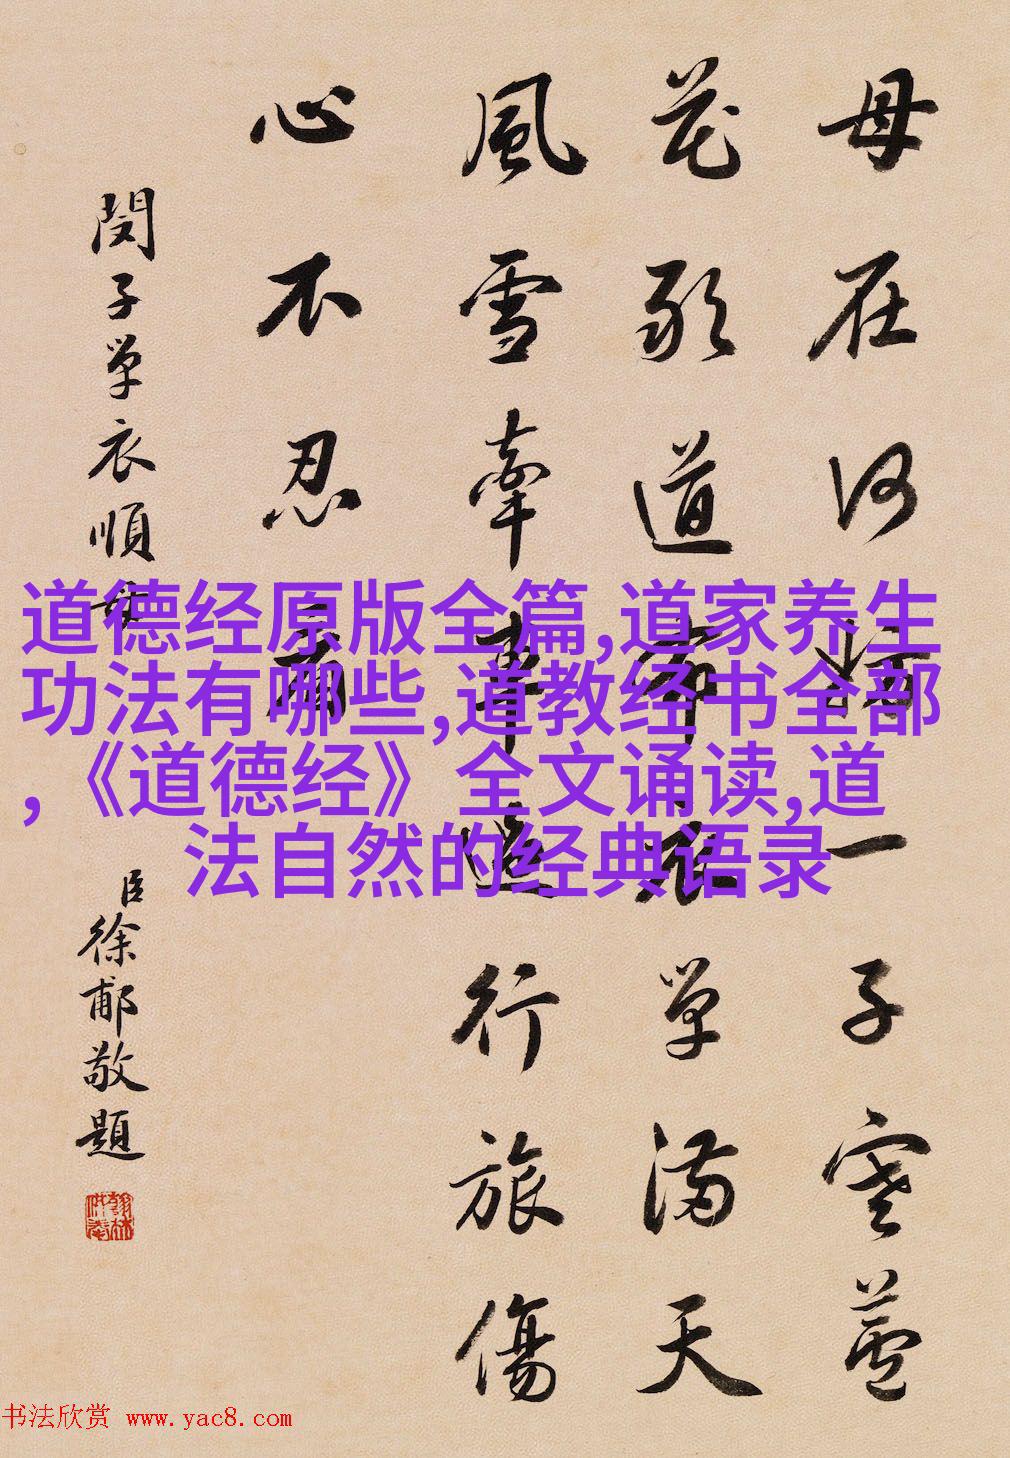 母在何 一子寒蘆
花敢道 單滿天
風雪牽車 行旅傷
心不忍
閔子單衣順母
臣徐郙敬題
道德经原版全篇,道家养生
功法有哪些,道教经书全部
,《道德经》全文诵读,道
法自然的经典语录
书法欣赏 www.yac8.com